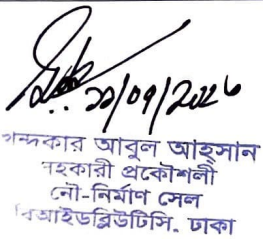 ২১/০৭/২০২৬
খন্দকার আবুল আহসান
সহকারী প্রকৌশলী
নৌ-নির্মাণ সেল
বিআইডব্লিউটিসি. ঢাকা